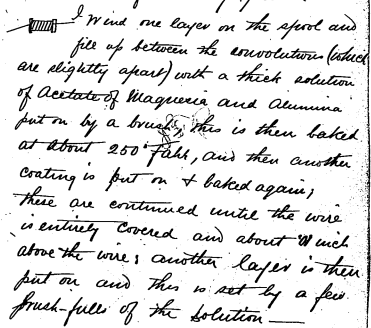 I Wind one layer on the spool and
fill up between the convolutions (which
are slightly apart) with a thick solution
of Acetate of Magnesia and Alumina
put on by a brush; this is then baked
at about 250° Fahr, and then another
coating is put on & baked again;
these are continued until the wire
is entirely covered and about inch
above the wire; another layer is then
put on and this is set by a few
brush-fulls of the solution—